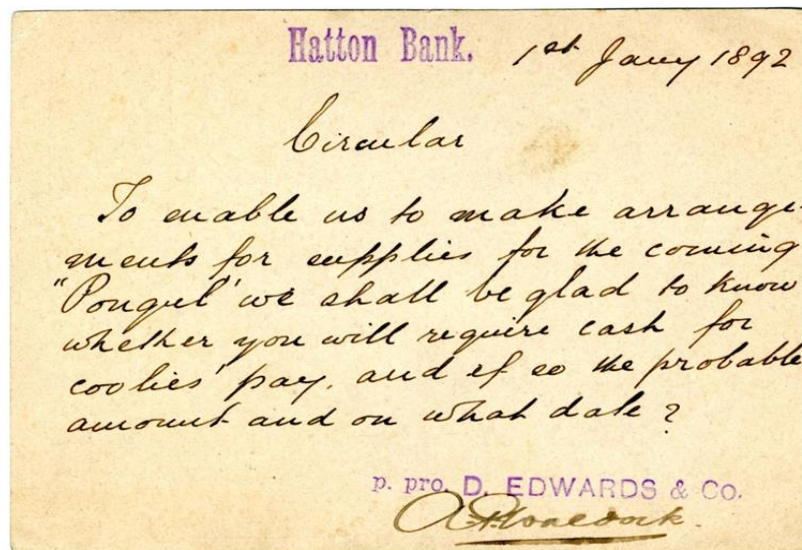 Hatton Bank. 1st Jany 1892
Circular
To enable us to make arrange-
ments for supplies for the coming
"Pongul" we shall be glad to know
whether you will require cash for
coolies' pay. and if so the probable
amount and on what date ?
p. pro D. EDWARDS & Co.